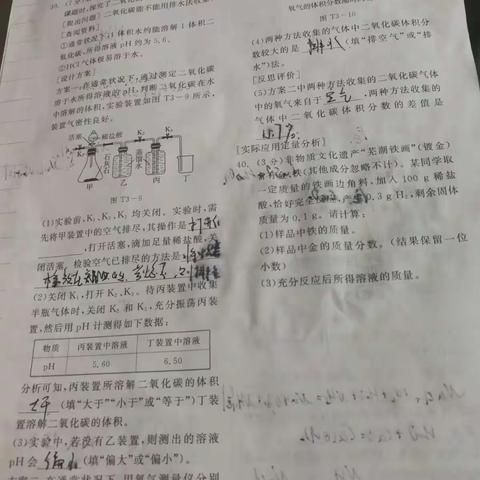 39.(7分)
[提出问题]二氧化碳能不能用排水法收集
[查阅资料]
①通常状况下1体积水约能溶解1体积二
氧化碳,所得溶液pH约为5.6。
②HCl气体极易溶于水。
[设计方案]
方案一:在通常状况下,通过测定二氧化碳
溶于水所得溶液的pH,判断二氧化碳在水
中溶解的体积,实验装置如图T3-9所示,
装置气密性良好。
活塞
稀盐酸
K₁
K₂
K₃
石灰石
蒸馏水
甲 乙 丙 丁
图T3-9
(1)实验前,K₁、K₂、K₃均关闭。实验时,需
先将甲装置中的空气排尽,其操作是
,打开活塞,滴加足量稀盐酸,关
闭活塞。检验空气已排尽的方法是
(2)关闭K₁,打开K₂、K₃。待丙装置中收集
半瓶气体时,关闭K₂和K₃,充分振荡丙装
置,然后用pH计测得如下数据:
物质 丙装置中溶液 丁装置中溶液
pH 5.60 6.50
分析可知,丙装置所溶解二氧化碳的体积
大于(填“大于”“小于”或“等于”)丁装
置溶解二氧化碳的体积。
(3)实验中,若没有乙装置,则测出的溶液
pH会偏小(填“偏大”或“偏小”)。
方案二:在通常状况下,用氧气测量仪分别
图T3-10
(4)两种方法收集的气体中二氧化碳体积分
数较大的是 (填“排空气”或“排
水”)法。
[反思评价]
(5)方案二中两种方法收集的二氧化碳气体
中的氧气来自于空气,两种方法收集的
气体中二氧化碳体积分数的差值是
[实际应用定量分析]
40.(3分)非物质文化遗产“芜湖铁画”(镀金)
(其他成分忽略不计)。某同学取
一定质量的铁画边角料,加入100 g稀盐
酸,恰好完全 0.3 g H₂,剩余固体
质量为0.1 g。请计算:
(1)样品中铁的质量。
(2)样品中金的质量分数。(结果保留一位
小数)
(3)充分反应后所得溶液的质量。